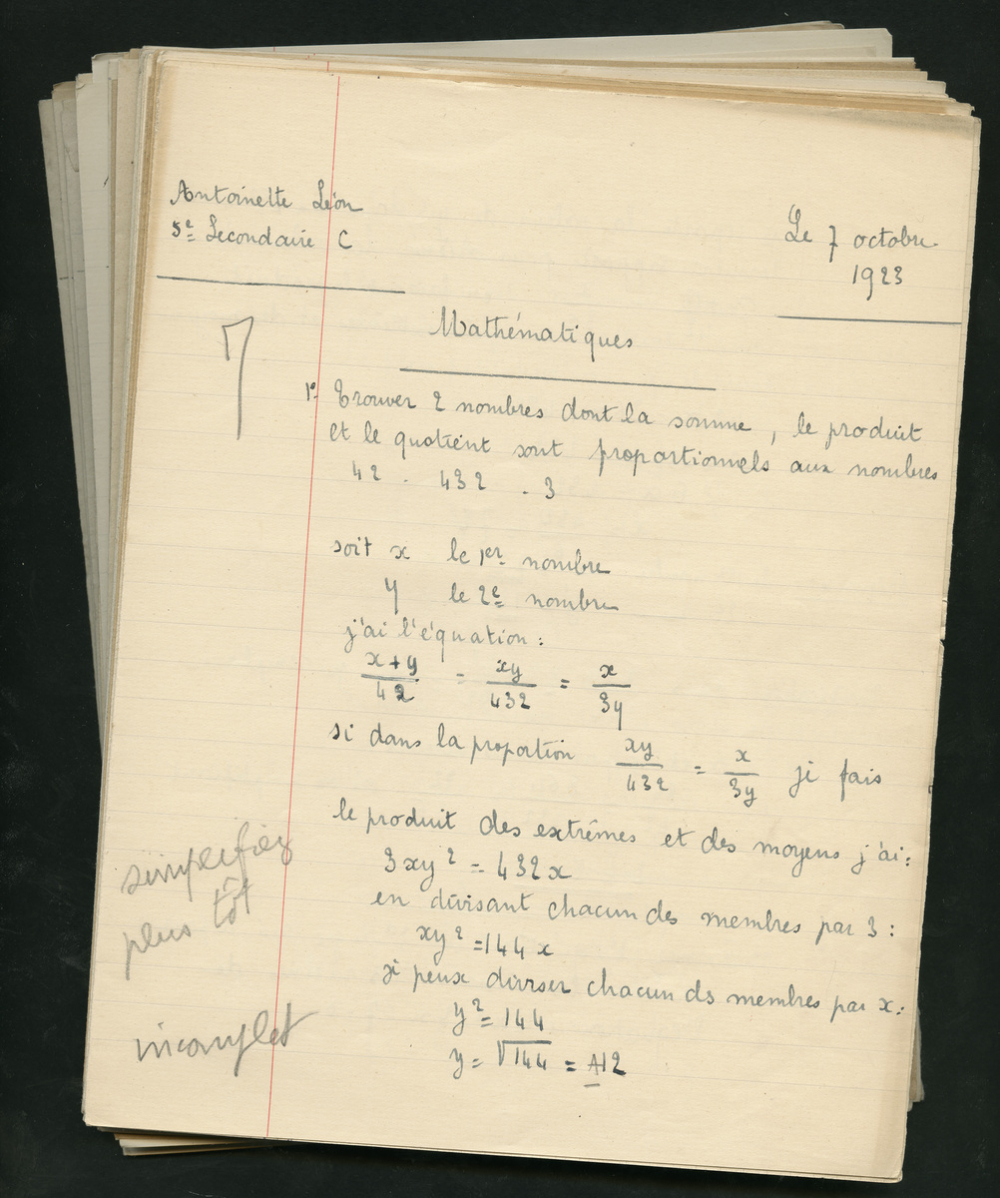 Antoinette Léon
5e Secondaire C
Le 7 octobre
1923
7
Mathématiques
1º Trouver 2 nombres dont la somme, le produit
et le quotient sont proportionnels aux nombres
42 . 432 . 3
soit x le 1er nombre
y le 2e nombre
j'ai l'équation :
x+y/42 = xy/432 = x/3y
si dans la proportion xy/432 = x/3y je fais
le produit des extrêmes et des moyens j'ai :
3xy² = 432x
en divisant chacun des membres par 3 :
xy² = 144x
simplifiez
plus tôt
je peux diviser chacun ds membres par x :
y² = 144
incomplet
y = √144 = 12